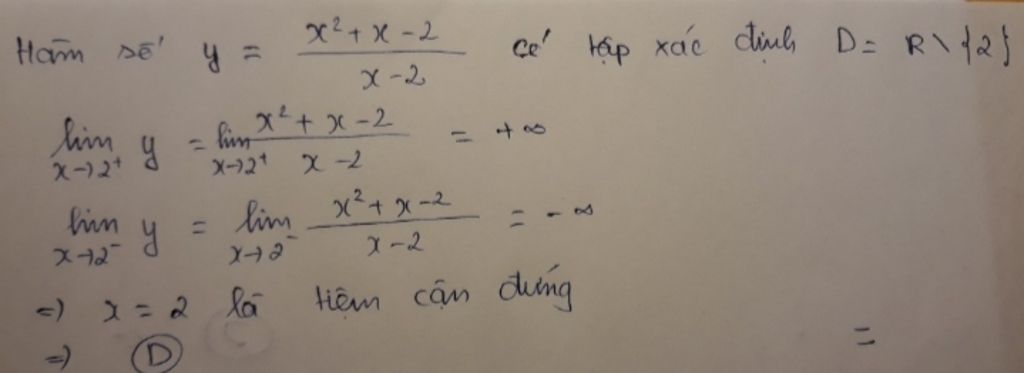 Hàm số y = (x² + x - 2)/(x - 2) có tập xác định D = R \ {2}
lim x→2⁺ y = lim x→2⁺ (x² + x - 2)/(x - 2) = +∞
lim x→2⁻ y = lim x→2⁻ (x² + x - 2)/(x - 2) = -∞
=) x = 2 là tiệm cận đứng
=
=) D